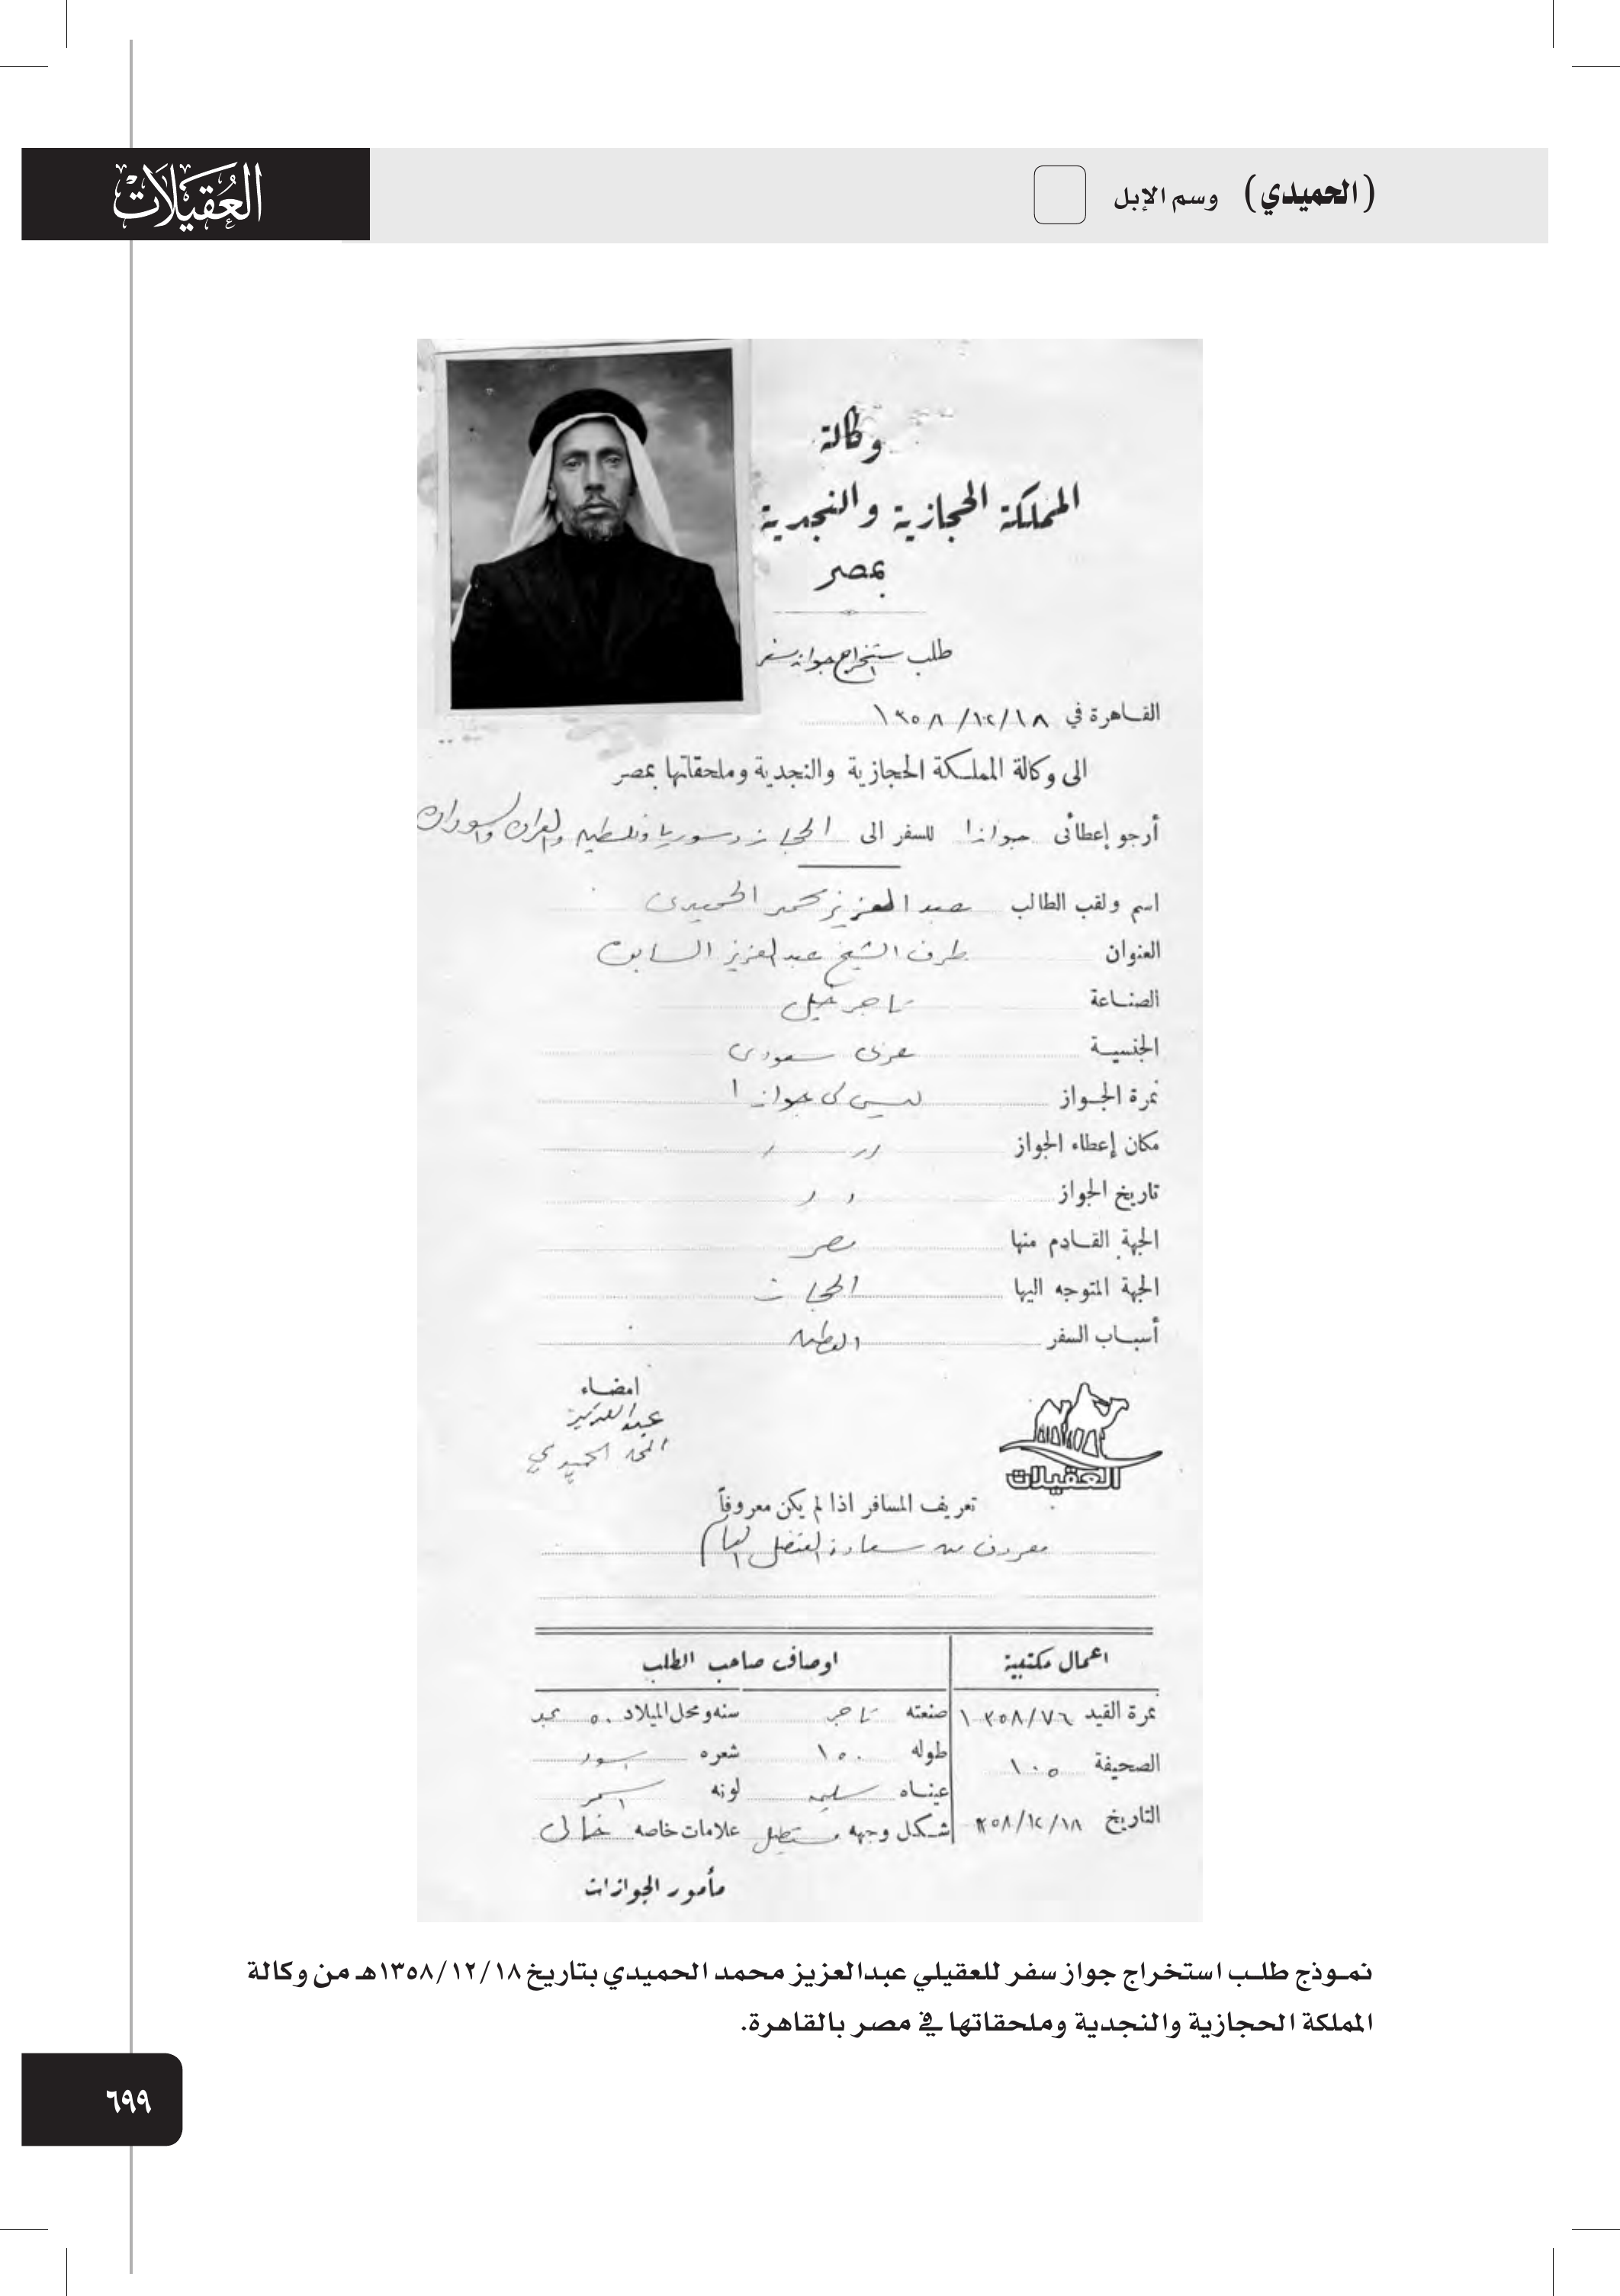 (الحميدي) وسم الإبل
العقيلات
وكالة
المملكة الحجازية والنجدية
بمصر
طلب استخراج جواز سفر
القاهرة في ١٨/١٢/١٣٥٨
الى وكالة المملكة الحجازية والنجدية وملحقاتها بمصر
أرجو إعطائى جوازا للسفر الى الحجاز وسوريا وفلسطين والعراق والسودان
اسم ولقب الطالب عبد العزيز محمد الحميدى
العنوان طرف الشيخ عبد العزيز السابق
الصناعة تاجر خيل
الجنسية عربى سعودى
نمرة الجواز ليس لى جوازا
مكان إعطاء الجواز
تاريخ الجواز
الجهة القادم منها مصر
الجهة المتوجه اليها الحجاز
أسباب السفر الوطن
امضاء
عبد العزيز
المحمد الحميدي
العقيلات
تعريف المسافر اذا لم يكن معروفاً
معروف من سعادة القنصل العام
اعمال مكتبية
اوصاف صاحب الطلب
نمرة القيد ١٣٥٨/٧٦ صنعته تاجر سنه ومحل الميلاد ٥٠ نجد
الصحيفة ١٠٥ طوله ١٥٠ شعره اسود
عيناه سليمه لونه اسمر
التاريخ ١٨/١٢/٣٥٨ شكل وجهه مستطيل علامات خاصه خالى
مأمور الجوازات
نموذج طلب استخراج جواز سفر للعقيلي عبدالعزيز محمد الحميدي بتاريخ ١٣٥٨/١٢/١٨هـ من وكالة
المملكة الحجازية والنجدية وملحقاتها في مصر بالقاهرة.
٦٩٩